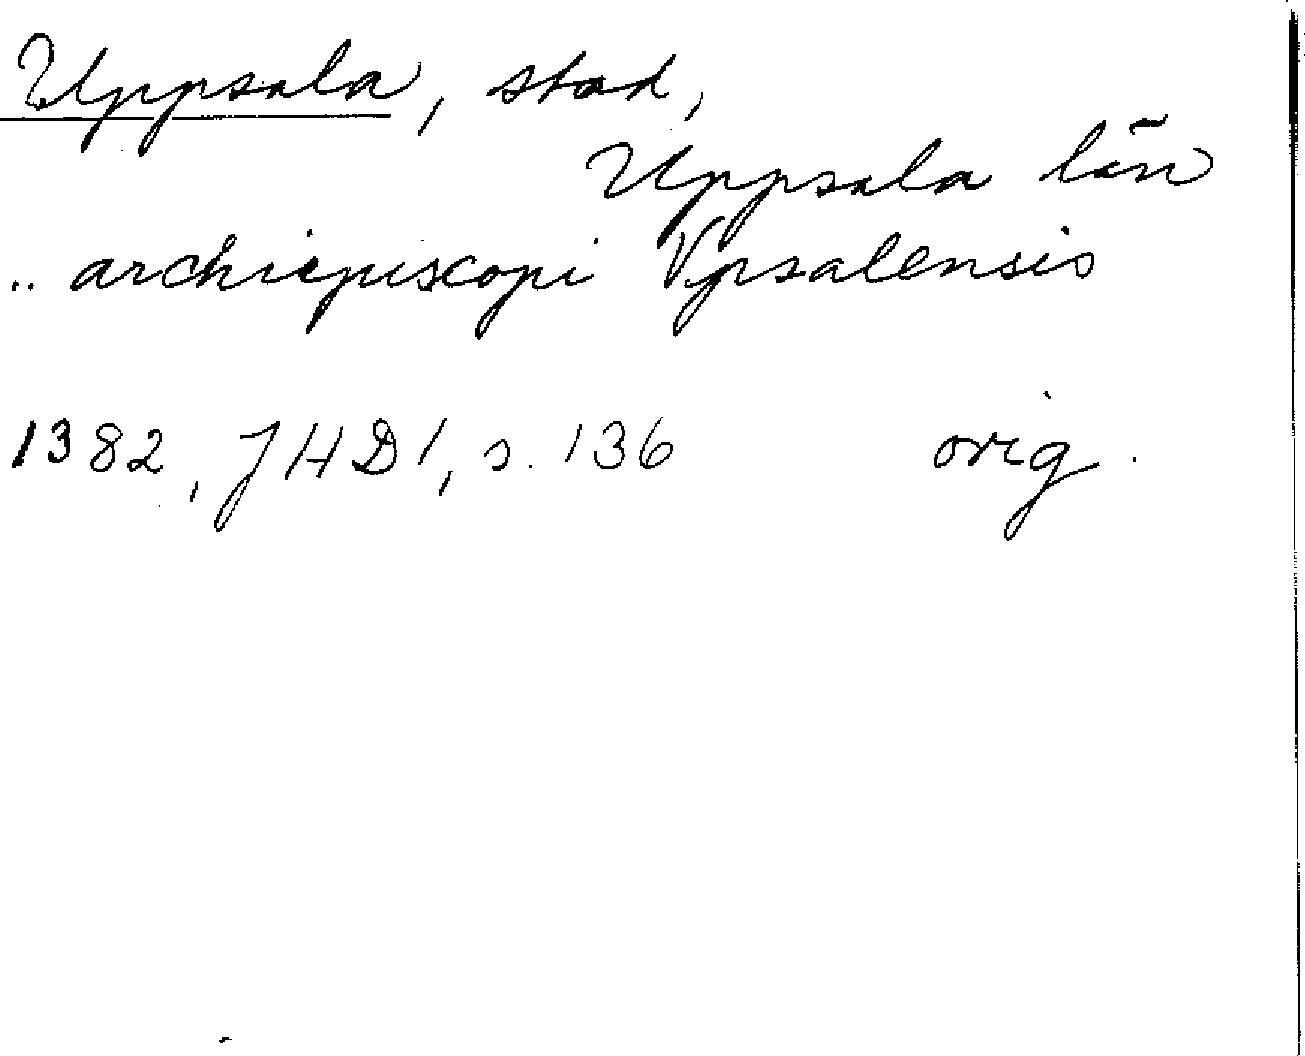 Uppsala, stad,
Uppsala län
.. archiepiscopi Vpsalensis
1382, JHD 1, s. 136 orig.